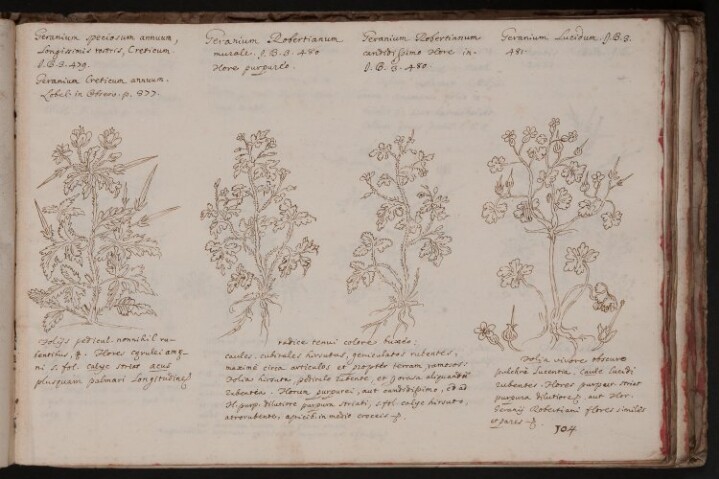 Geranium speciosum annuum,
Longissimis rostris, Creticum.
J.B.3.479.
Geranium Creticum annuum.
Lobel. in p. 577.
Geranium Robertianum
murale. J.B.3. 480
flore purpureo.
Geranium Robertianum
candidissimo flore in
J.B. 3. 480.
Geranium Lucidum. J.B.3.
481.
Folijs pedical. nonnihil ru-
bentibus, Flores cęrulei amę-
ni 5. fol. calyce striat. acus
plusquam palmari Longitudine
radice tenui colore buxeo:
caules cubitales hirsutos, geniculatos rubentes;
maximè circa articulos et propter terram ramosos:
Folia hirsuta pediculo rubente, et grosius aliquando
rubentia. Florum purpurei, aut candidissimo,
fl. purp. dilutiore purpura striati, 5. fol. calyce hirsuto,
atrorubente, apicib. in medio croceis
Folia virore obscuro
pulchrè Lucentia. Caule Lucidi
rubentes. Flores purpur. striat
purpura dilutiore, aut flor.
Geranij Robertiani flores similes
et pares
104